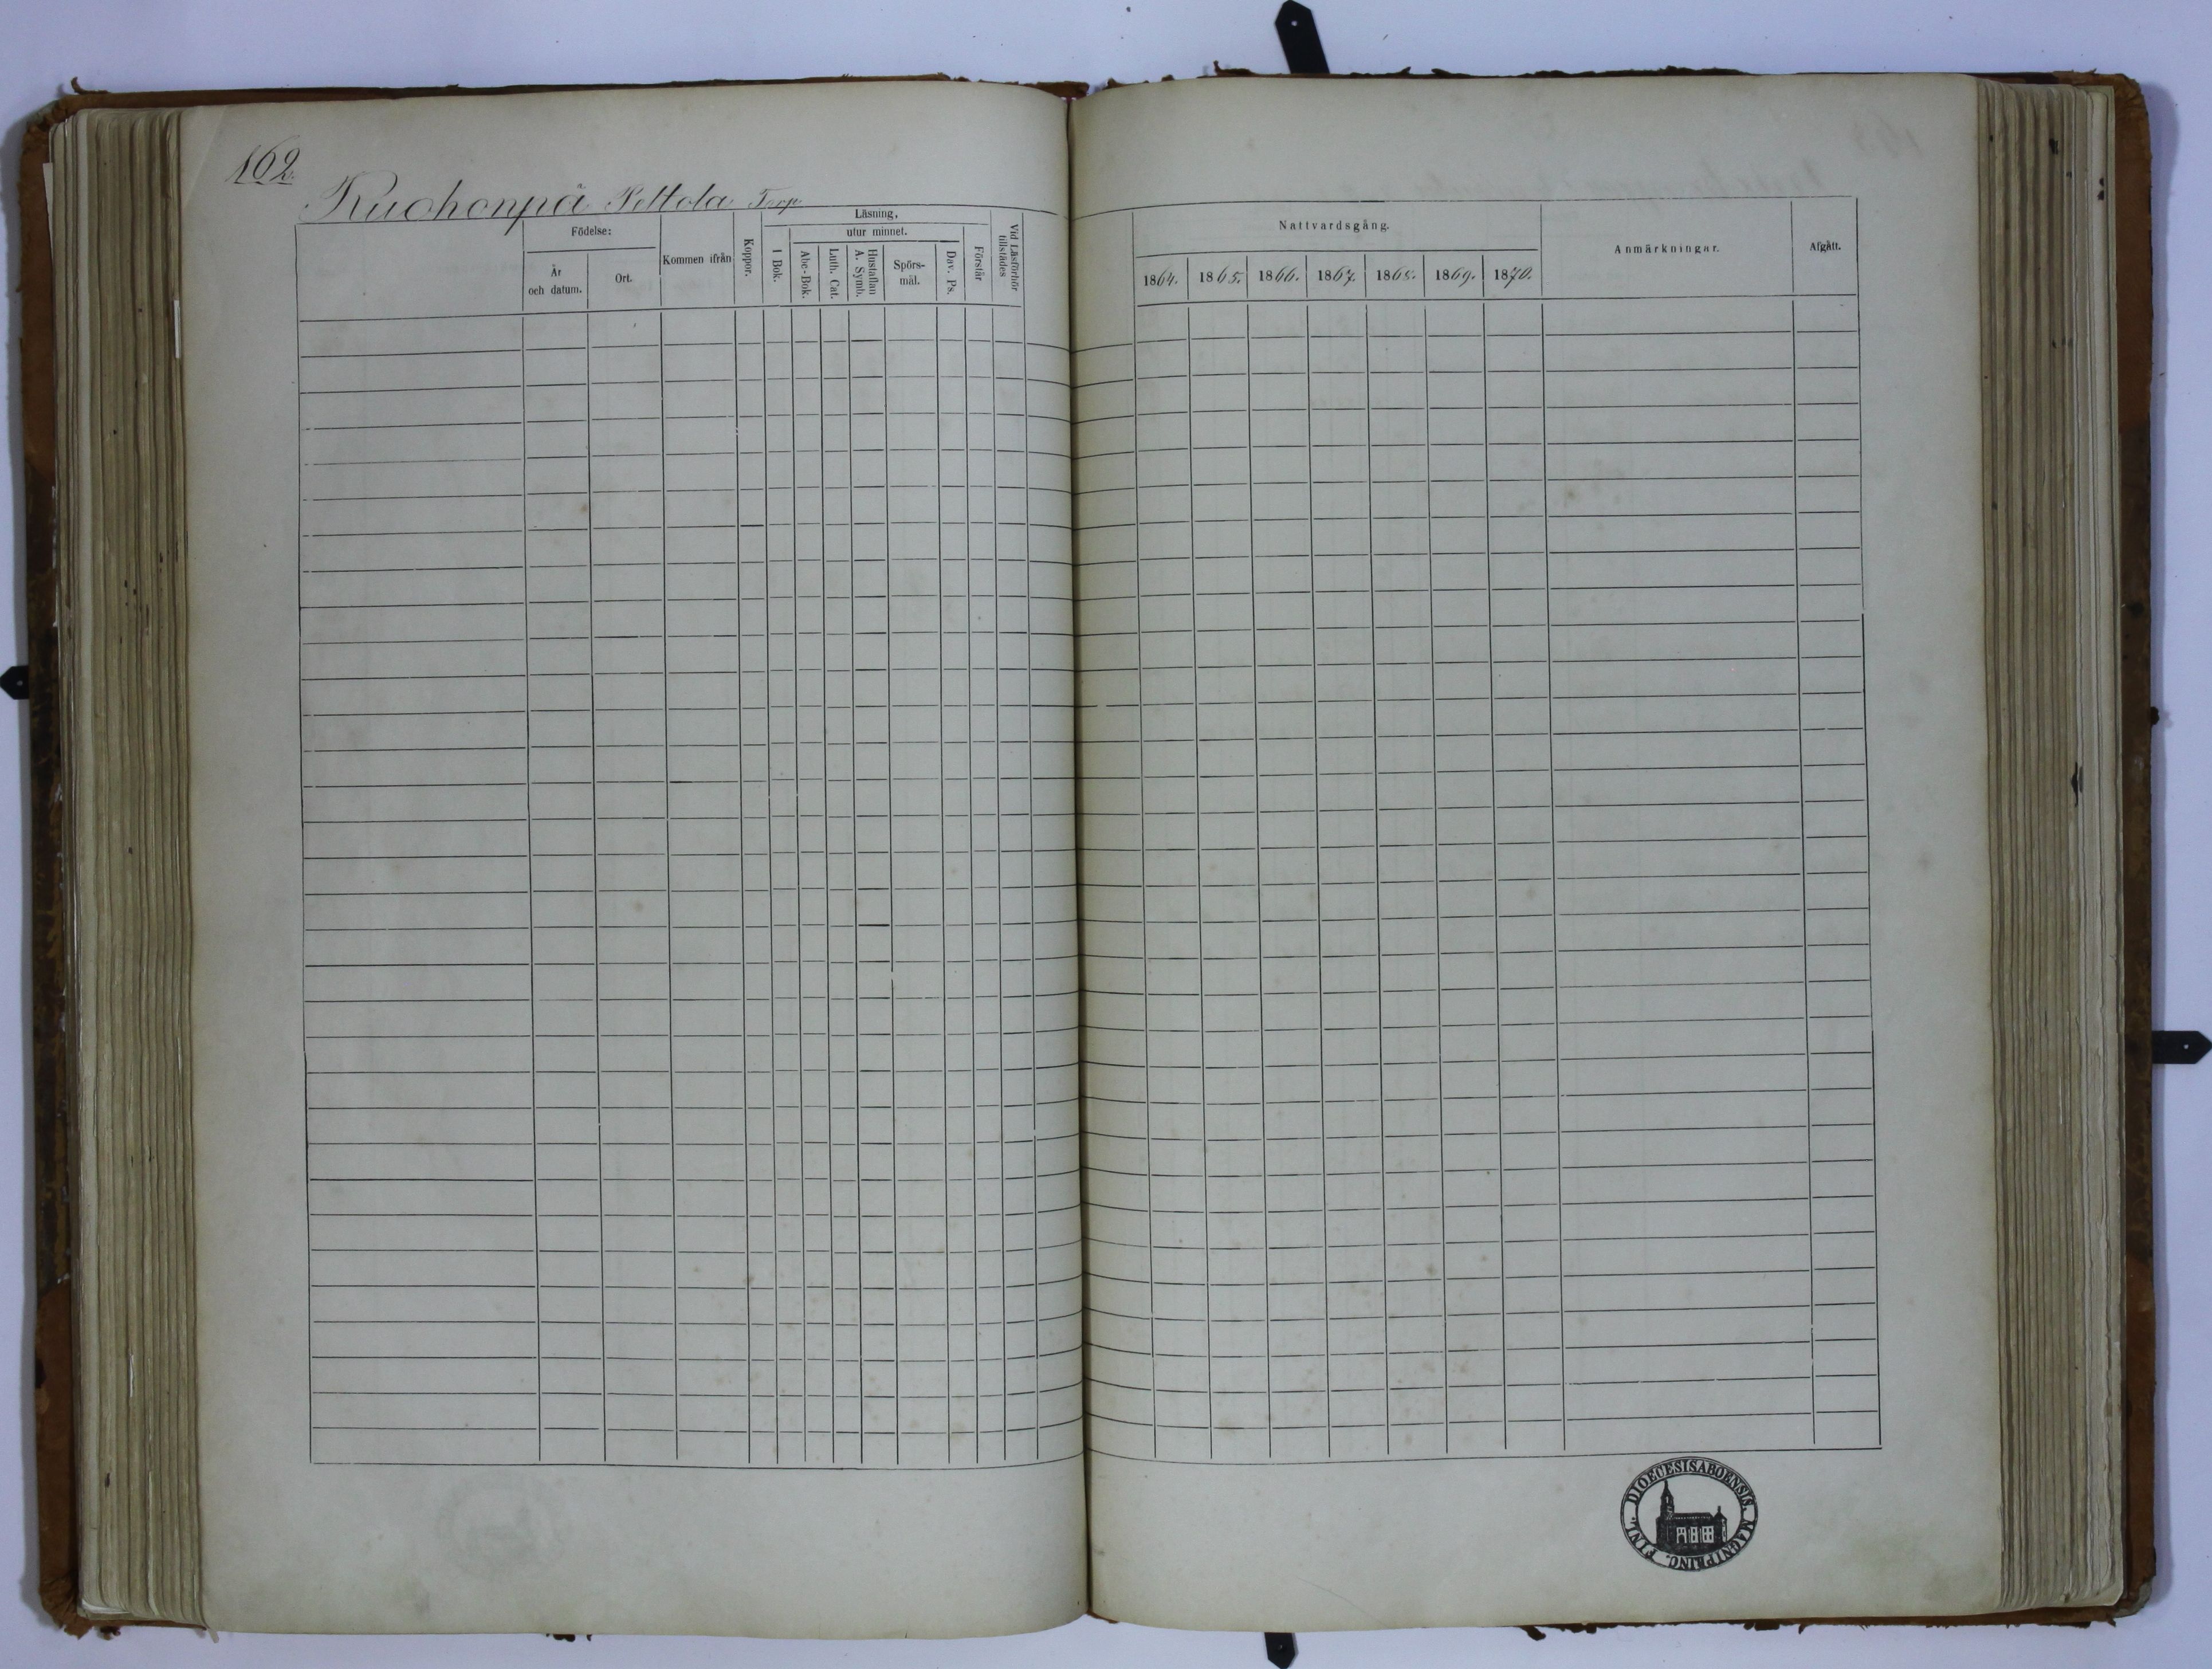 162.
Ruohonpä Peltola Torp
Födelse:
År
och datum.
Ort.
Kommen ifrån
Koppor.
Läsning,
I Bok.
utur minnet.
Abc-Bok.
Luth. Cat.
Hustaflan
A. Symb.
Spörs-
mål.
Dav. Ps.
Förstår
Vid Läsförhör
tillstädes
Nattvardsgång.
1864.
1865.
1866.
1867.
1868.
1869.
1870.
Anmärkningar.
Afgått.
DIOECESIS ABOENSIS. MAGNI PRINC. FINL.